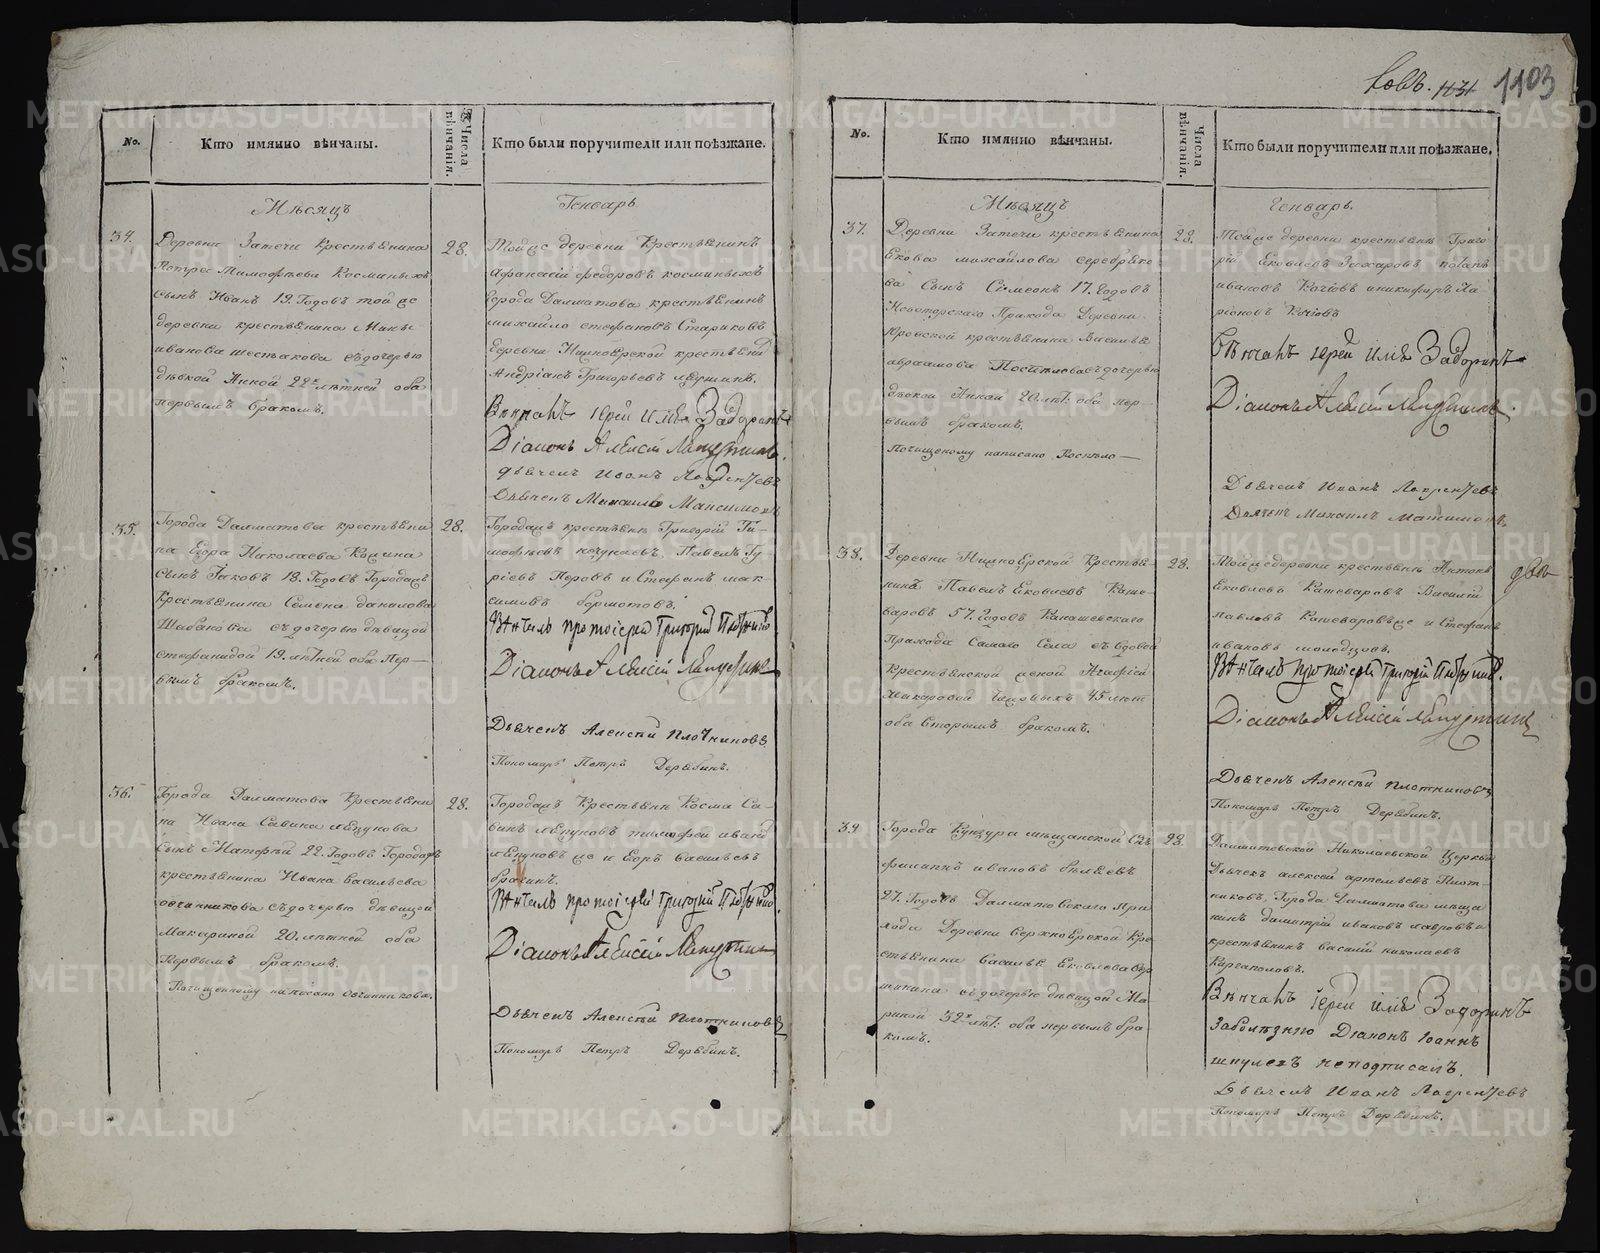 ковъ. 1131 1103
No.
Кто имянно вѣнчаны.
Числа вѣнчанія.
Кто были поручители или поѣзжане.
Мѣсяцъ
Генварь.
34.
Деревни Затечи крестьянина
Петра Тимофѣева Косминыхъ
сынъ Иванъ 19. Годовъ той же
деревни крестьянина Мины
иванова шестакова съдочерью
дѣвкой Анной 22х лѣтней оба
первымъ бракомъ.
28.
Тойже деревни Крестьянинъ
Афанасій федоровъ косминыхъ
Города Далматова крестьянинъ
михайло стефановъ Стариковъ
Деревни Нижноярской крестьянинъ
Андріанъ Григорьевъ лапушинъ.
Вѣнчалъ іерей Илія Задоринъ
Діаконъ Алексій
Дьячекъ Иванъ Лаврентьевъ
Дьячекъ Михаилъ Максимовъ
35.
Города Далматова крестьяни
на Егора Николаева Копина
сынъ Яковъ 18. Годовъ Городажъ
Крестьянина Семена данилова
Шабанова съдочерью дѣвицой
стефанидой 19. лѣтней оба пер-
вымъ бракомъ.
28.
Городажъ крестьяне Григорій Ти-
мофѣевъ Павелъ Гу-
ріевъ Перовъ и Стефанъ мак-
симовъ бормотовъ.
Вѣнчалъ протоіерей Григорій
Діаконъ Алексій
Дьячекъ Алексѣй Плотниковъ
Пономарь Петръ Дерябинъ.
36.
Города Далматова Крестьяни
на Ивана Савина ляпунова
сынъ Матфей 22. Годовъ Городажъ
крестьянина Ивана васильева
овчинникова съдочерью дѣвицой
Макариной 20. лѣтней оба
первымъ бракомъ.
Почищенному написано Овчинникова.
28.
Городажъ Крестьяне Косма Са-
винъ ляпуновъ тимофей ивановъ
ляпуновъ же и Егоръ васильевъ
брагинъ.
Вѣнчалъ протоіерей Григорій
Діаконъ Алексій
Дьячекъ Алексѣй Плотниковъ
Пономарь Петръ Дерябинъ.
No.
Кто имянно вѣнчаны.
Числа вѣнчанія.
Кто были поручители или поѣзжане.
Мѣсяцъ
Генварь.
37.
Деревни Затечи крестьянина
Якова михайлова серебряко-
ва Сынъ Сѵмеонъ 17. Годовъ
Прихода Деревни
Юровской крестьянина Василья
авраамова Поспѣлова съдочерью
дѣвкой Анной 20. лѣт: оба пер-
вымъ бракомъ.
Почищеному написано Поспѣло-
28.
Тойже деревни крестьяне Григо
рій Яковлевъ Захаровъ потапъ
ивановъ Качовъ иникифоръ Ла-
ріоновъ Качовъ
Вѣнчалъ іерей Илія Задоринъ
Діаконъ Алексій
Дьячекъ Иванъ Лаврентьевъ
Дьячекъ Михаилъ Максимовъ.
38.
Деревни Нижноярской Крестья-
нинъ Павелъ Яковлевъ Каше-
варовъ 57. Годовъ Канашевскаго
Прихода Самаго Села съвдовой
Крестьянской женой Агафіей
45 лѣт
оба вторымъ бракомъ.
28.
Тойжедеревни крестьяне Антонъ
Яковлевъ Кашеваровъ Василій
павловъ Кашеваровъже и Стефанъ
ивановъ молодцовъ.
Вѣнчалъ протоіерей Григорій
Діаконъ Алексій
Дьячекъ Алексѣй Плотниковъ
Пономарь Петръ Дерябинъ.
39
Города Кунгура мѣщанской Сынъ
филиппъ ивановъ бѣляевъ
27. Годовъ Далматовскаго При
хода Деревни Верхноярской Кре
стьянина василья Яковлева
съдочерью дѣвицой Ма
риной 32х лѣт: оба первымъ бра
комъ.
28.
Далматовской Николаевской Церкви
Дьячекъ алексѣй артемьевъ Плот-
никовъ, Города Далматова мѣща
нинъ димитрій ивановъ лавровъ и
крестьянинъ василій николаевъ
Каргаполовъ.
Вѣнчалъ Іерей Илія Задоринъ
Заболѣзнію Діаконъ Іоаннъ
неподписалъ.
Дьячекъ Иванъ Лаврентьевъ
Пономарь Петръ Дерябинъ.
METRIKI.GASO-URAL.RU